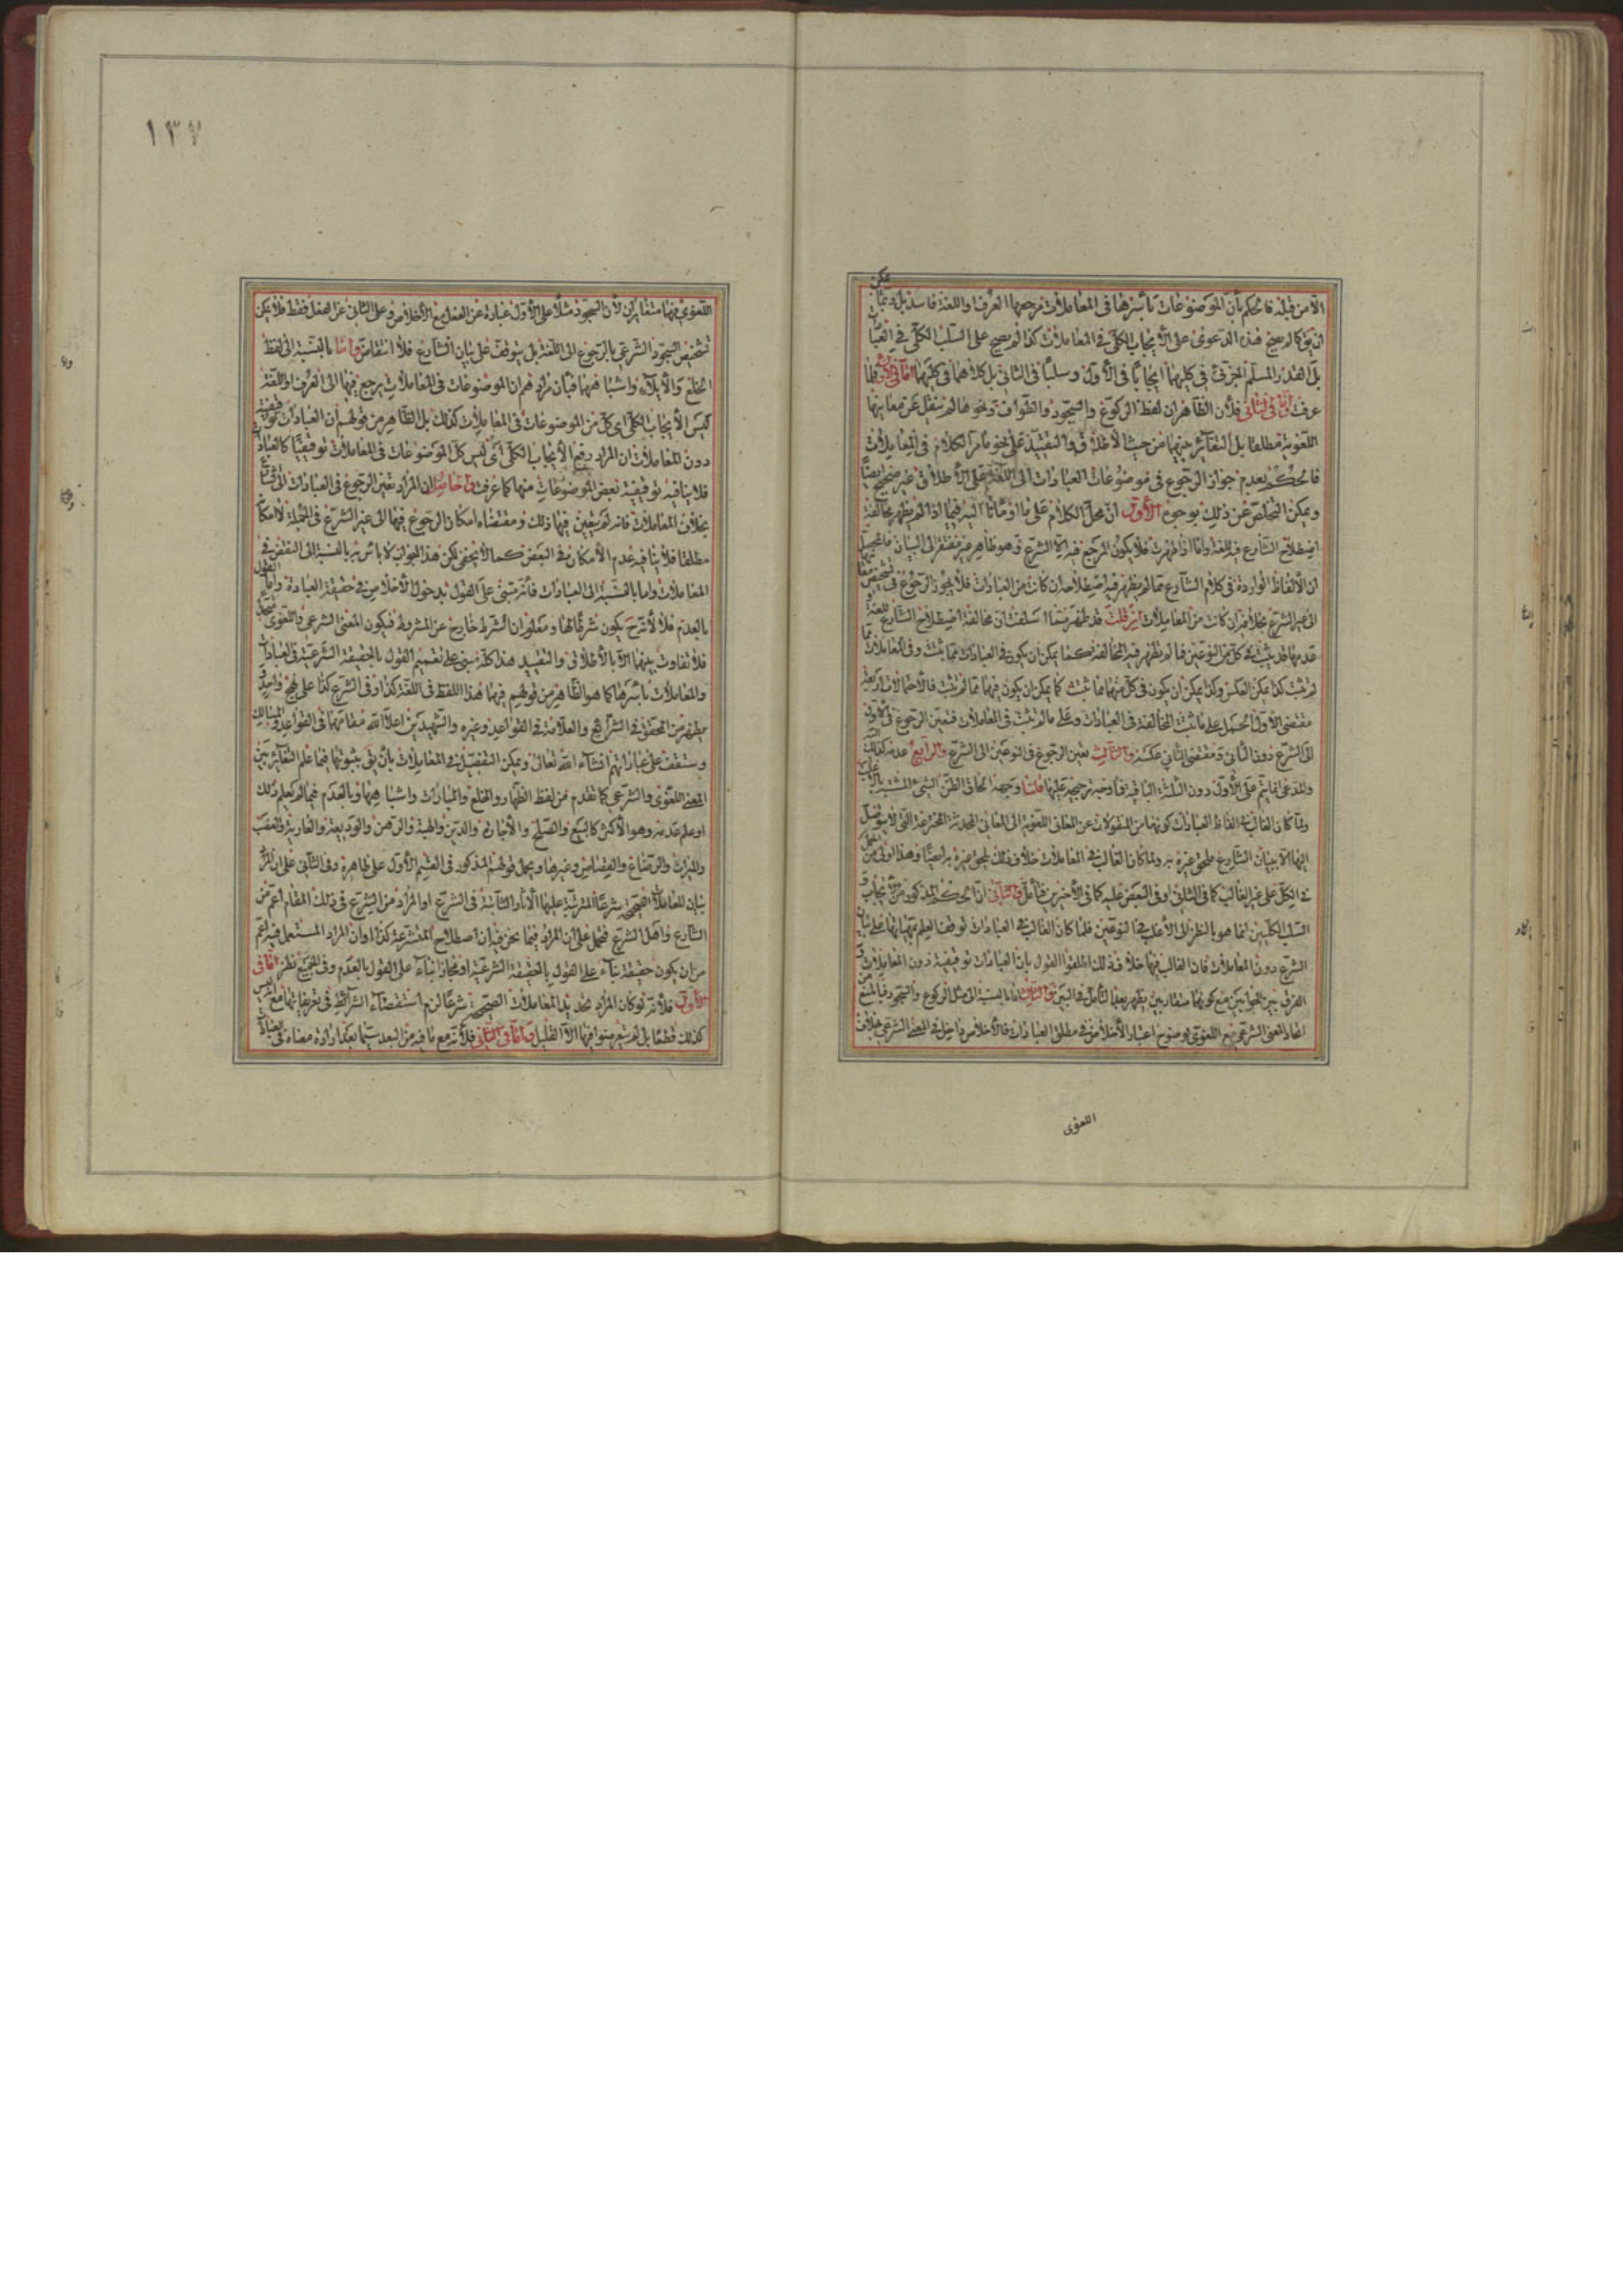 الا من قبله فالحكم بأن الموضوعات بأسرها فى المعاملات مرجعها العرف واللغة فاسد بل ربما يمكن
ان يق كما لم يصح هذه الدعوى على الايجاب الكلى فى المعاملات كذا لم يصح على السلب الكلى فى العبادات
بل القدر المسلم الجزئى فى كليهما ايجابا فى الاول وسلبا فى الثانى بل كلاهما فى كليهما اما فى الاول فلما
عرفت واما فى الثانى فلأن الظاهر ان لفظ الركوع والسجود والطواف ونحوها لم ينقل عن معاينها
اللغوية مطلقا بل التغاير بينهما من حيث الاطلاق والتقييد على نحو ما مر الكلام فى المعاملات
فالحكم بعدم جواز الرجوع فى موضوعات العبادات الى اللغة على الاطلاق غير صحيح ايضا
ويمكن التخلص عن ذلك بوجوه الأول ان محل الكلام على ما اومأنا اليه فيما اذا لم يظهر مخالفة
اصطلاح الشارع للغة واما اذا ظهرت فلا يكون المرجع فيه الا الشرع وهو ظاهر غير مفتقر الى البيان فالحاصل
ان الألفاظ الواردة فى كلام الشارع مما لم يظهر فيه اصطلاحه ان كانت من العبادات فلا يجوز الرجوع فى تشخيص معانيها
الى غير الشرع بخلافه ان كانت من المعاملات إن قلت قد ظهر مما اسلفت ان مخالفة اصطلاح الشارع للغة
وعدمها قد يثبت فى كل من النوعين فما لم يظهر فيه المخالفة كما يمكن ان يكون فى العبادات مما يثبت وفى المعاملات مما
لم يثبت كذا يمكن العكس وكذا يمكن ان يكون فى كل منهما مما يثبت كما يمكن ان يكون فيهما مما لم يثبت فالاحتمالات اربعة
مقتضى الاول الحمل على ما يثبت المخالفة فى العبادات وعلى ما لم يثبت فى المعاملات فتعين الرجوع فى الاول
الى الشرع دون الثانى ومقتضى الثانى عكسه والثالث تعين الرجوع فى النوعين الى الشرع والرابع عدمه كذلك
والمدعى انما يتم على الاول دون الثلثة الباقية فما وجه ترجيحه عليها قلنا وجهه الحاق الظن الشئ المشتبه بالاغلب
ولما كان الغالب فى الفاظ العبادات كونها من المنقولات عن المعانى اللغوية الى المعانى المحدثة المخترعة التى لا يتوصل
اليها الا ببيان الشارع فيلحق غيره به ولما كان الغالب فى المعاملات خلاف ذلك فيلحق غيره به ايضا وهذا اولى من حمل
الكل على غير الغالب كما فى الثانى او فى البعض عليه كما فى الأخيرين فتأمل والثانى ان الحكم المذكور من الايجاب و
السلب الكليين انما هو بالنظر الى الأغلب فى النوعين فلما كان الغالب فى العبادات توقف العلم بمهياتها على بيان
الشرع دون المعاملات فان الغالب فيها خلاف ذلك اطلقوا القول بان العبادات توقيفية دون المعاملات و
الفرق بين الجوابين مع كونهما متقاربين يظهر بعد التأمل فى البين والثالث اما بالنسبة الى مثل الركوع والسجود فبالمنع من
اتحاد المعنى الشرعى مع اللغوى لوضوح اعتبار الأخلاص فى مطلق العبادات فالأخلاص داخل فى المعنى الشرعى بخلاف
اللغوى
١٣٧
اللغوى فهما متغايران لأن السجود مثلا على الأول عبارة عن الفعل مع الأخلاص وعلى الثانى عن الفعل فقط فلا يمكن
تشخيص السجود الشرعى بالرجوع الى اللغة بل يتوقف على بيان الشارع فلا انتقاض واما بالنسبة الى لفظ
الخلع والأيلاء واشباههما فبأن مرادهم ان الموضوعات فى المعاملات يرجع فيها الى العرف او اللغة
ليس الأيجاب الكلى اى كل من الموضوعات فى المعاملات كذلك بل الظاهر من قولهم ان العبادات توقيفية
دون المعاملات ان المراد رفع الأيجاب الكلى اى ليس كل الموضوعات فى المعاملات توقيفيا كالعبادات
فلا ينافيه توقيفية بعض الموضوعات منها كما عرفت والحاصل ان المراد تعين الرجوع فى العبادات الى الشارع
بخلاف المعاملات فانه لم يتعين فيها ذلك ومقتضاه امكان الرجوع فيها الى غير الشرع فى الجملة لا امكانه
مطلقا فلا ينافيه عدم الأمكان فى البعض كما لا يخفى لكن هذا الجواب لا بأس به بالنسبة الى النقض فى
المعاملات واما بالنسبة الى العبادات فأنه مبتنى على القول بدخول الأخلاص فى حقيقة العبادة واما على القول
بالعدم فلا لأنه ح يكون شرطا لها ومعلوم ان الشرط خارج عن المشروط فيكون المعنى الشرعى واللغوى متحدا
فلا تفاوت بينهما الا بالأطلاق والتقييد هذا كله مبنى على تعميم القول بالحقيقة الشرعية فى العبادات
والمعاملات بأسرها كما هو الظاهر من قولهم فيها هذا اللفظ فى اللغة كذا وفى الشرع كذا على نهج واحد و
يظهر من المحقق فى الشرائع والعلامة فى القواعد وغيره والشهيدين اعلا الله مقامهما فى القواعد والمسالك
وستقف على عباراتهم انشاء الله تعالى ويمكن التفصيل فى المعاملات بأن يق بثبوتها فيما علم التغاير بين
المعنى اللغوى والشرعى كما تقدم من لفظ الظهار والخلع والمبارات واشباهها وبالعدم فيما لم يعلم ذلك
او علم عدمه وهو الأكثر كالبيع والصلح والأجارة والدين والهبة والرهن والوديعة والعارية والغصب
والميراث والرضاع والقصاص وغيرها ويحمل قولهم المذكور فى القسم الأول على ظاهره وفى الثانى على ان المراد
بيان المعاملات الصحيحة شرعا المترتبة عليها الأثار الثابتة فى الشرع او المراد من الشرع فى ذلك المقام اعم من
الشارع واهل الشرع فيحمل على ان المراد فيما نحن فيه ان اصطلاح المتشرعة كذا او ان المراد المستعمل فيه اعم
من ان يكون حقيقة بناء على القول بالحقيقة الشرعية او مجازا بناء على القول بالعدم وفى الجميع نظر اما فى
الأول فلأنه لو كان المراد تحديد المعاملات الصحيحة شرعا لزم استقصاء الشرائط فى تعريفاتها مع انه ليس
كذلك قطعا بل لم يتعرضوا فيها الا القليل واما فى الثانى فلأنه مع ما فيه من البعد سيما بعد ارادة معناه فى العبادات